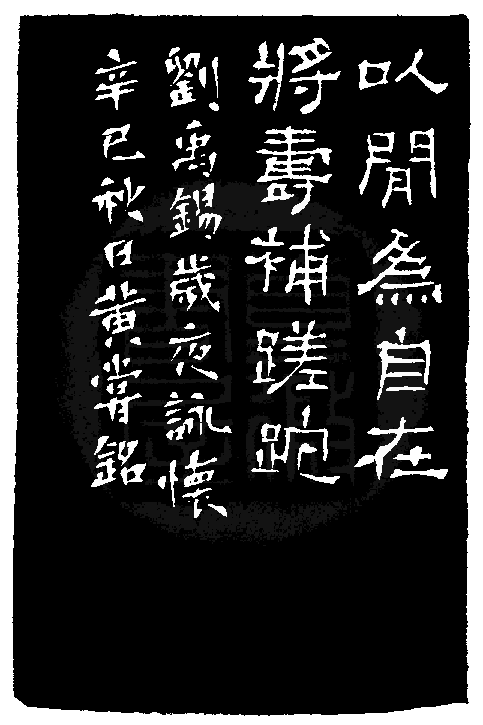 以閒為自在
將壽補蹉跎
劉禹錫歲夜詠懷
辛巳秋日黃嘗銘